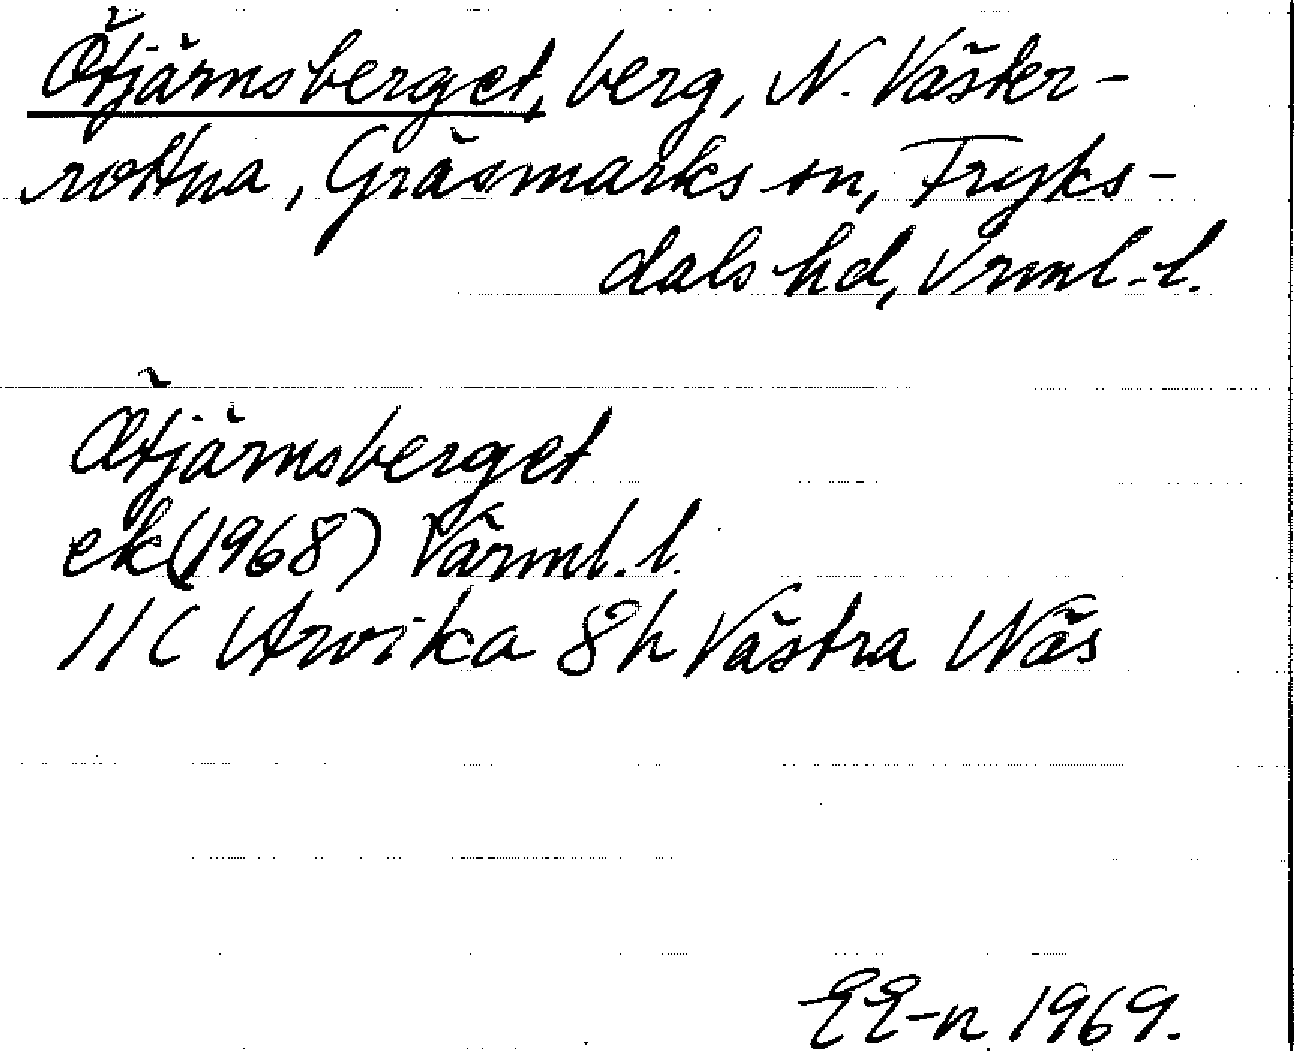 Ötjärnsberget, berg, N. Väster-
rottna, Gräsmarks sn, Fryks-
dals hd, Vrml. l.
Ötjärnsberget
ek (1968) Värml. l.
11C Arvika 8h Västra Näs
EE-n 1969.